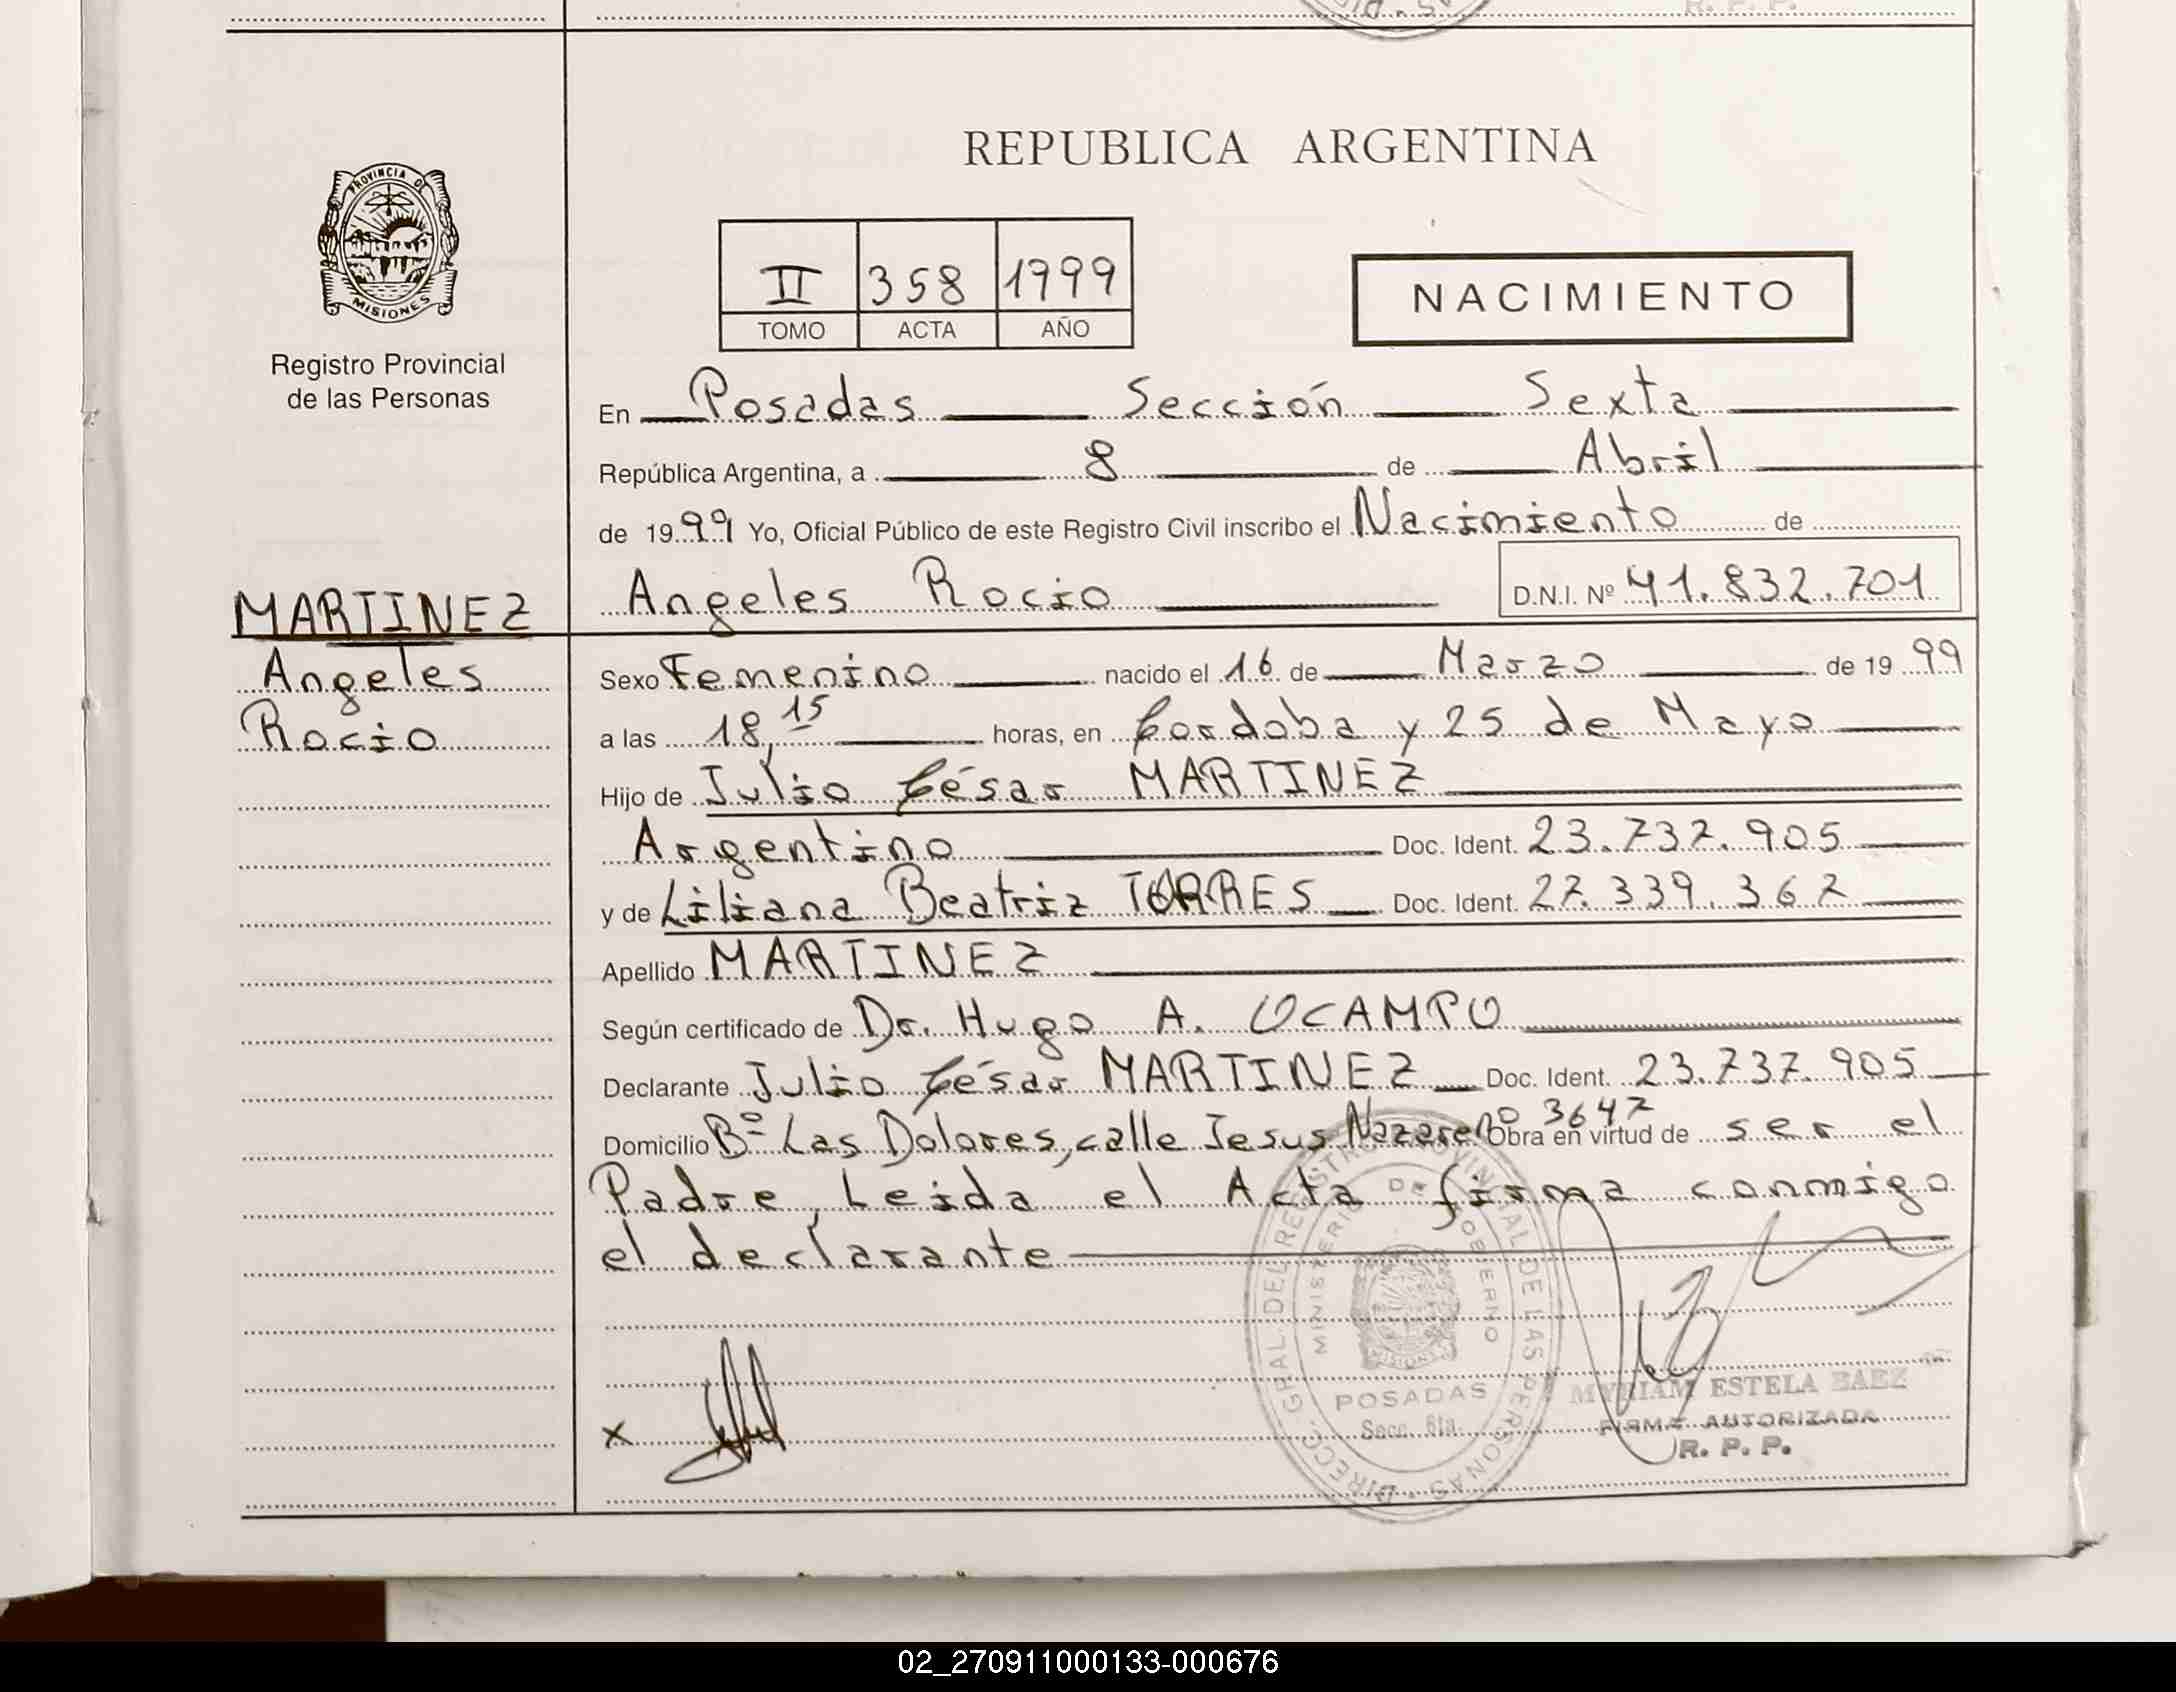 R. P. P.
PROVINCIA DE
MISIONES
Registro Provincial
de las Personas
REPUBLICA ARGENTINA
II 358 1999
TOMO ACTA AÑO
NACIMIENTO
En Posadas Sección Sexta
República Argentina, a 8 de Abril
de 1999 Yo, Oficial Público de este Registro Civil inscribo el Nacimiento de
Angeles Rocio D.N.I. Nº 41.832.701
MARTINEZ
Angeles
Rocio
Sexo Femenino nacido el 16 de Marzo de 1999
a las 18,15 horas, en Cordoba y 25 de Mayo
Hijo de Julio César MARTINEZ
Argentino Doc. Ident. 23.737.905
y de Liliana Beatriz TORRES Doc. Ident. 27.339.367
Apellido MARTINEZ
Según certificado de Dr. Hugo A. OCAMPO
Declarante Julio César MARTINEZ Doc. Ident. 23.737.905
Domicilio Bº Las Dolores, calle Jesus Nazareno 3647 Obra en virtud de ser el
Padre, Leida el Acta firma conmigo
el declarante
DIRECC. GRAL. DEL REGISTRO PROVINCIAL DE LAS PERSONAS
MINISTERIO DE GOBIERNO
MISIONES
POSADAS
Secc. 6ta.
x
MYRIAM ESTELA BAEZ
FIRMA AUTORIZADA
R. P. P.
02_270911000133-000676